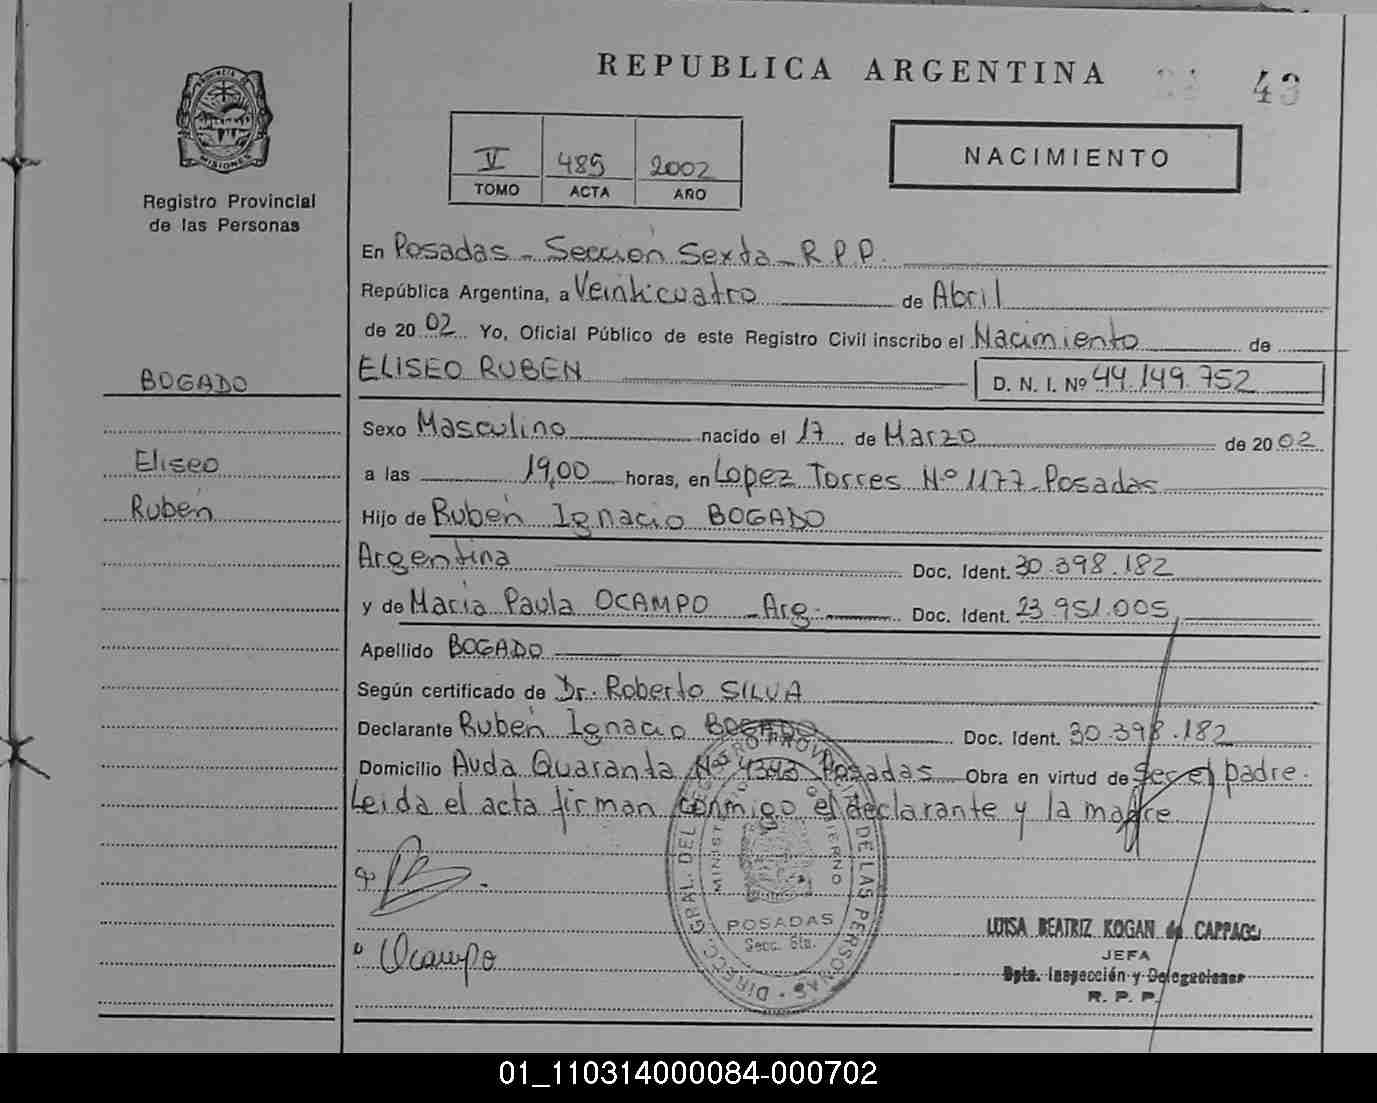 REPUBLICA ARGENTINA
43
PROVINCIA DE
MISIONES
Registro Provincial
de las Personas
V 485 2002
TOMO ACTA AÑO
NACIMIENTO
En Posadas - Sección Sexta - R.P.P.
República Argentina, a Veinticuatro de Abril
de 2002 Yo, Oficial Público de este Registro Civil inscribo el Nacimiento de
ELISEO RUBEN D. N. I. Nº 44.149.752
BOGADO
Eliseo
Rubén
Sexo Masculino nacido el 17 de Marzo de 2002
a las 19,00 horas, en Lopez Torres Nº 1177 - Posadas
Hijo de Rubén Ignacio BOGADO
Argentina Doc. Ident. 30.398.182
y de Maria Paula OCAMPO - Arg. Doc. Ident. 23.951.005
Apellido BOGADO
Según certificado de Dr. Roberto SILVA
Declarante Rubén Ignacio BOGADO Doc. Ident. 30.398.182
Domicilio Avda Quaranta Nº 4343 Posadas Obra en virtud de Ser el padre.
Leida el acta firman conmigo el declarante y la madre
Ocampo
DIRECC. GRAL. DEL REGISTRO PROVINCIAL DE LAS PERSONAS
MINISTERIO DE GOBIERNO
POSADAS
Secc. 6ta.
LUISA BEATRIZ KOGAN de
JEFA
Dpto. Inspección y Delegaciones
R. P. P.
01_110314000084-000702